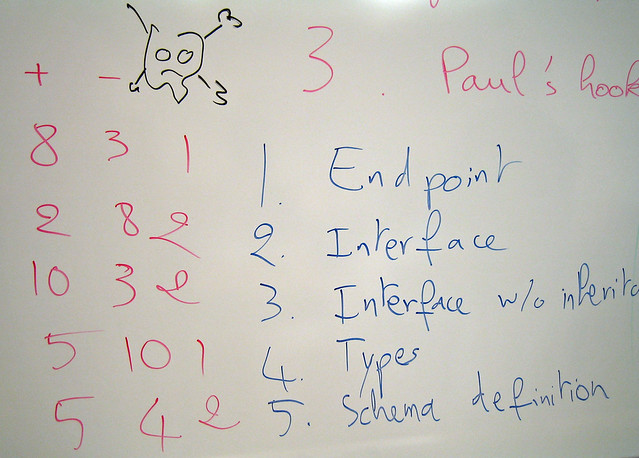 3. Paul's hook
+ -
8 3 1 1. Endpoint
2 8 2 2. Interface
10 3 2 3. Interface w/o inherita
5 10 1 4. Types
5 4 2 5. Schema definition